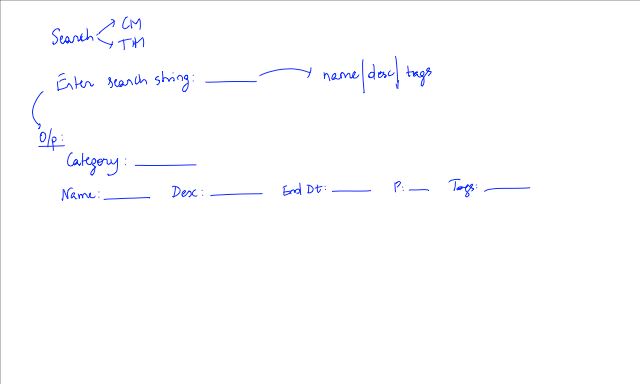 Search CM
TM
Enter search string: name | desc | tags
O/p:
Category:
Name: Desc: End Dt: P: Tags: